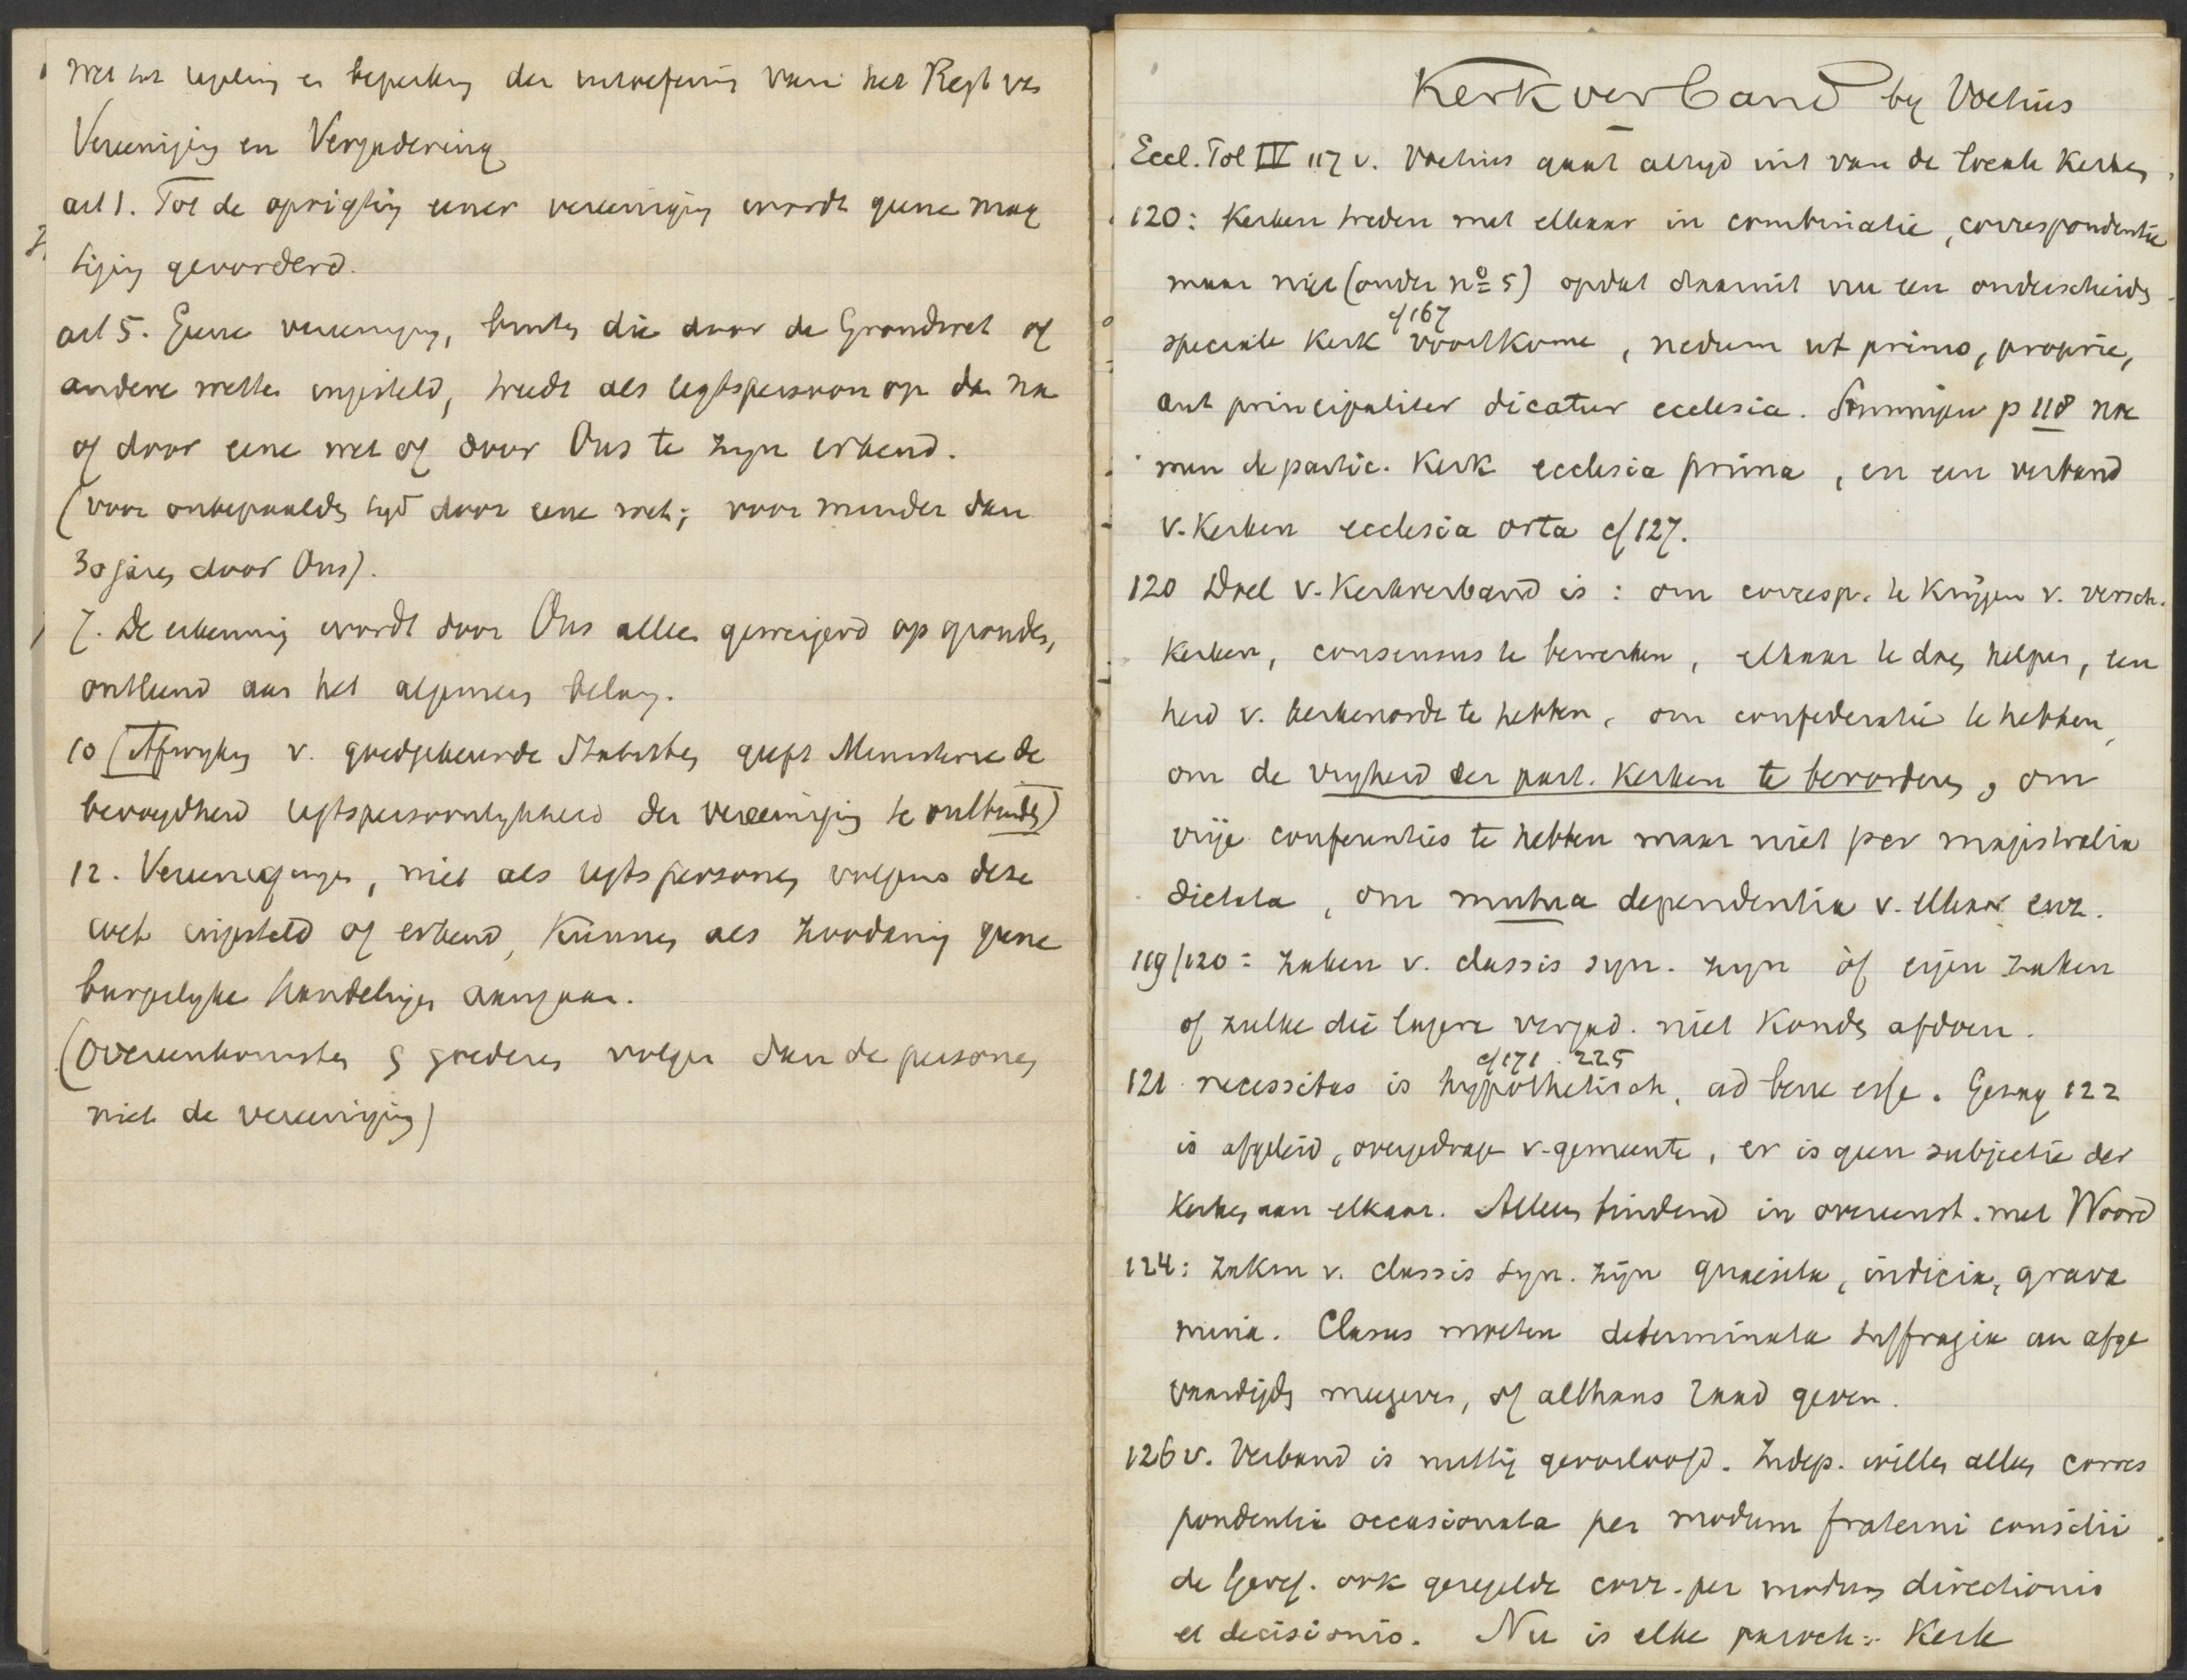 Wet tot regeling en beperking der uitoefening van het Regt van
Vereeniging en Vergadering
art 1. Tot de oprigting eener vereeniging wordt geene mag
tiging gevorderd.
art 5. Geene vereeniging, buiten die door de Grondwet of
andere wetten ingesteld, treedt als regtspersoon op dan na
of door eene wet of door Ons te zyn erkend.
(voor onbepaalden tyd door eene wet; voor minder dan
30 jaren door Ons).
7. De erkenning wordt door Ons alleen geweigerd op gronden,
ontleend aan het algemeen belang.
10 (Afwyking v. goedgekeurde Statuten geeft Ministerie de
bevoegdheid regtspersoonlykheid der vereeniging te ontbinden)
12. Vereenigingen, niet als regtspersonen volgens deze
wet ingesteld of erkend, kunnen als zoodanig geene
burgerlyke handelingen aangaan.
(overeenkomsten & goederen volgen dan de personen
niet de vereeniging)
Kerkverband by Voetius
Eccl. Pol IV 117 v. Voetius gaat altyd uit van de locale Kerken,
120: Kerken treden met elkaar in combinatie, correspondentie
maar niet (onder no 5) opdat daaruit nu een onderscheiden
cf 167
speciale Kerk voortkome, nedum ut primo, proprie,
aut principaliter dicatur ecclesia. Sommigen p 118 noe
men de partic. Kerk ecclesia prima, en een verband
v. Kerken ecclesia orta cf 127.
120 Doel v. Kerkverband is: om corresp. te krijgen v. versch.
Kerken, consensus te bewerken, elkaar te doen helpen, een
heid v. kerkenorde te hebben, om confederatie te hebben,
om de vryheid der part. Kerken te bevorderen, om
vrije conferenties te hebben maar niet per magistralia
dictata, om mutua dependentia v. elkaar enz.
119/120: zaken v. classis syn. zyn òf eigen zaken
of zulke die lagere vergad. niet konden afdoen.
cf 171. 225
121 necessitas is hypothetisch, ad bene esse. Gezag 122
is afgeleid, overgedragen v. gemeente, er is geen subjectie der
Kerken aan elkaar. Alleen bindend in overeenst. met Woord
124: zaken v. classis syn. zijn quaesita, indicia, grava
mina. Classis moeten determinata suffragia aan afge
vaardigden meegeven, of althans raad geven.
126 v. Verband is nuttig geoorloofd. Indep. willen alleen corres
pondentia occasionata per modum fraterni consilii
de Geref. ook geregelde corr. per modum directionis
et decisionis. Nu is elke paroch. Kerk